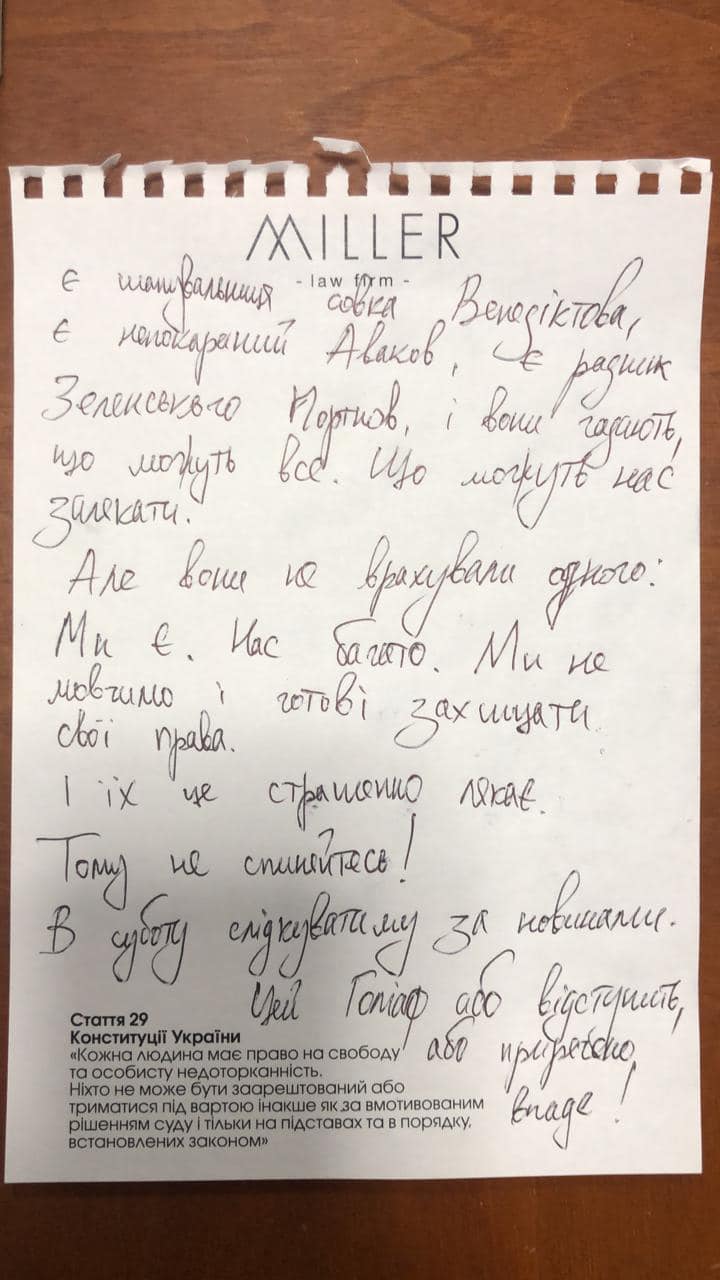 MILLER
- law firm -
Є шанувальниця совка Венедіктова,
Є непокараний Аваков, є радник
Зеленського Портнов, і вони гадають,
що можуть все. Що можуть нас
залякати.
Але вони не врахували одного:
Ми Є. Нас багато. Ми не
мовчимо і готові захищати
свої права.
І їх це страшенно лякає.
Тому не спиняйтесь!
В суботу слідкуватиму за новинами.
Цей Голіаф або відступить,
або приречено
впаде!
Стаття 29
Конституції України
«Кожна людина має право на свободу
та особисту недоторканність.
Ніхто не може бути заарештований або
триматися під вартою інакше як за вмотивованим
рішенням суду і тільки на підставах та в порядку,
встановлених законом»